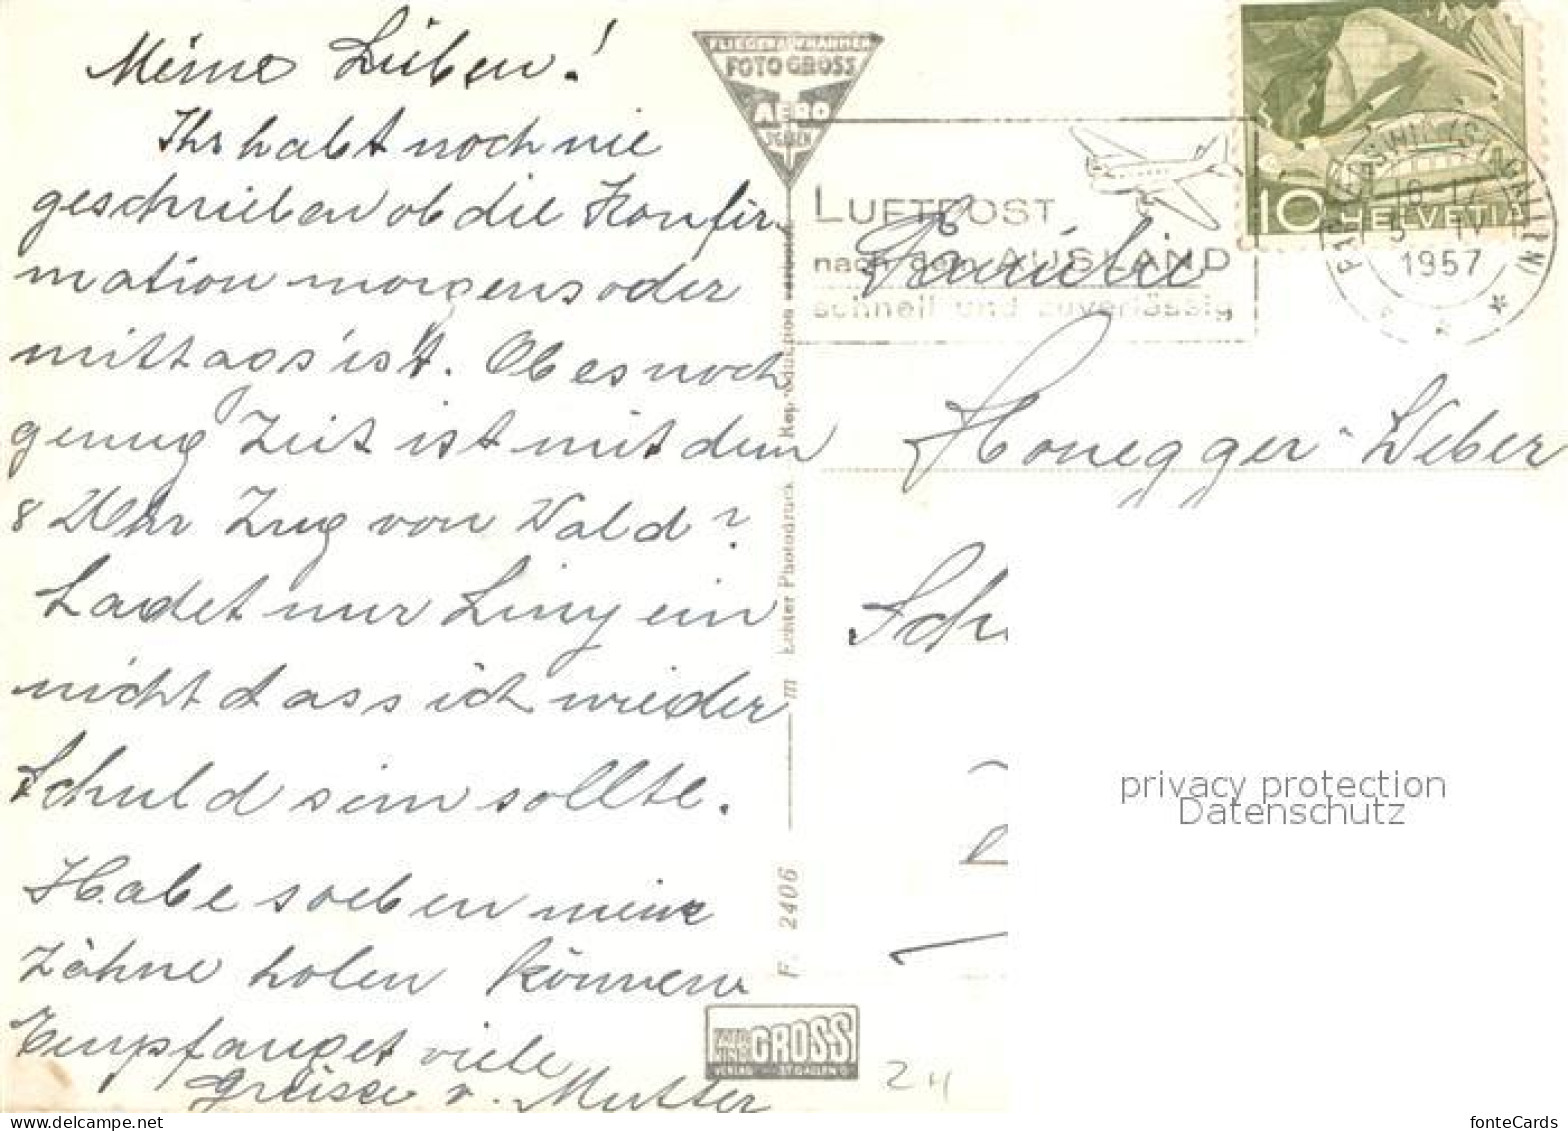 Meine Lieben!
Ihr habt noch nie
geschrieben ob die Konfir-
mation morgens oder
mittags ist. Ob es noch
genug Zeit ist mit dem
8 Uhr Zug von Wald?
Ladet nur Liny ein
nicht dass ich wieder
Schuld sein sollte.
Habe soeben meine
Zähne holen können
Empfanget viele
Grüsse v. Mutter
FLIEGERAUFNAHMEN
FOTO GROSS
AERO
ST. GALLEN
Echter Photodruck Reproduktion verboten
F. 2406
GROSS
VERLAG ST. GALLEN
LUFTPOST
nach dem AUSLAND
schnell und zuverlässig
10 HELVETIA
(ST. GALLEN)
1957
Familie
Honegger-Weber
Sch
24
privacy protection
Datenschutz
www.delcampe.net
fonteCards